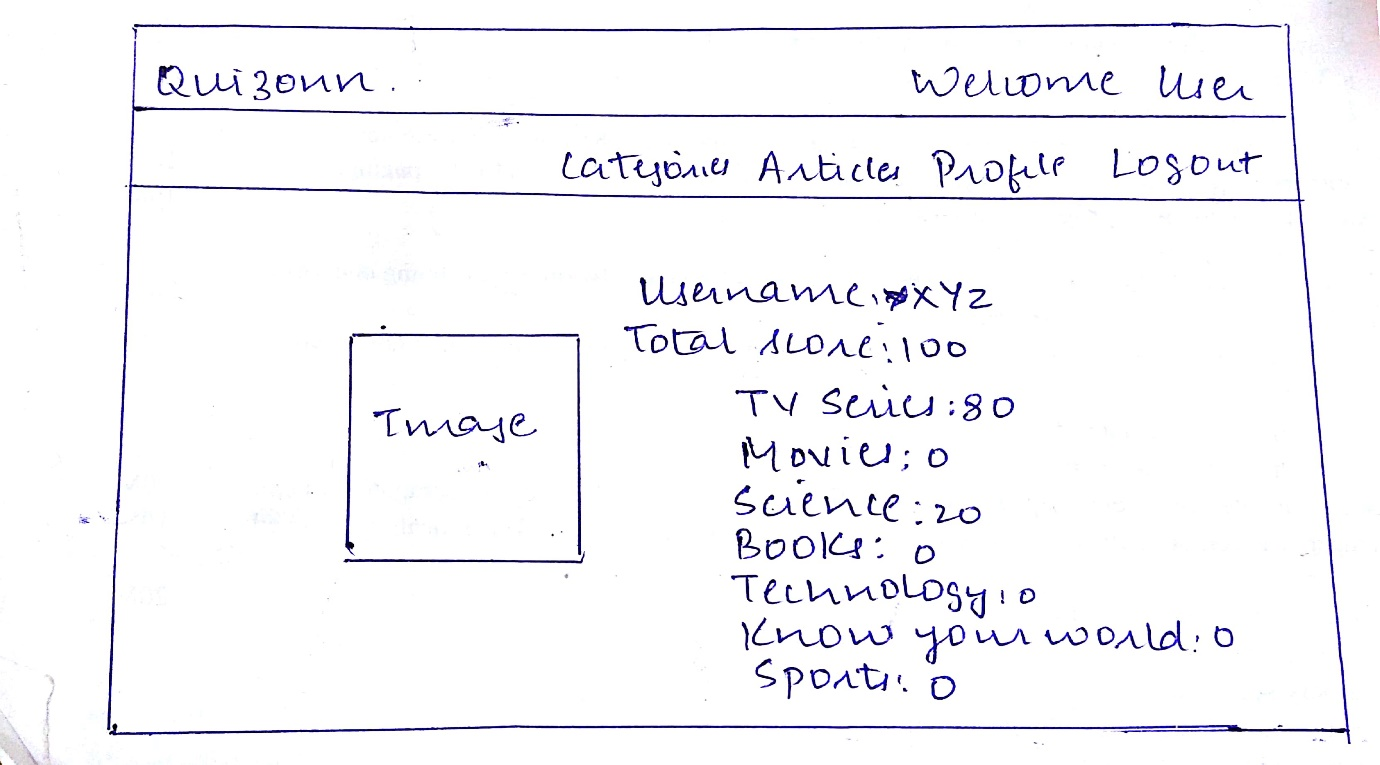 Quizonn.
Welcome User
Categories Articles Profile Logout
Username: XYZ
Total score: 100
Image
TV Series: 80
Movies: 0
Science: 20
Books: 0
Technology: 0
Know your world: 0
Sports: 0